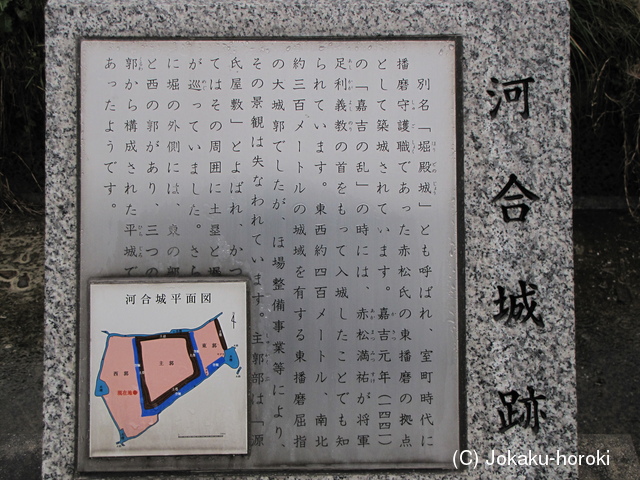 河合城跡
別名「堀殿城」とも呼ばれ、室町時代に
播磨守護職であった赤松氏の東播磨の拠点
として築城されています。嘉吉元年(一四四一)
の「嘉吉の乱」の時には、赤松満祐が将軍
足利義教の首をもって入城したことでも知
られています。東西約四百メートル、南北
約三百メートルの城域を有する東播磨屈指
の大城郭でしたが、ほ場整備事業等により、
その景観は失なわれています。主郭部は「原
氏屋敷」とよばれ、かつ
てはその周囲に土塁と堀
が巡っていました。さら
に堀の外側には、東の郭
と西の郭があり、三つの
郭から構成された平城で
あったようです。
河合城平面図
東郭
主郭
西郭
現在地
(C) Jokaku-horoki